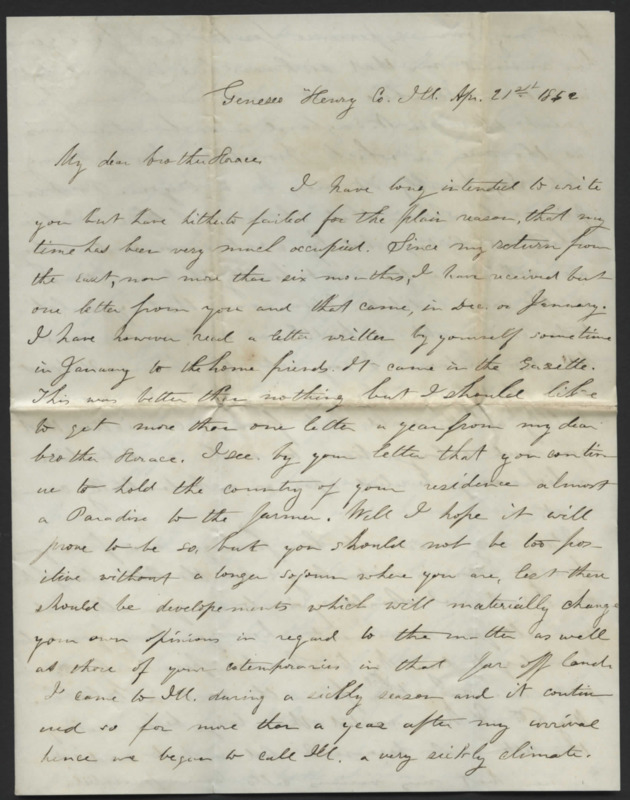 Geneseo Henry Co. Ill. Apr. 21st 1852
My dear brother Horace
I have long intended to write
you but have hitherto failed for the plain reason, that my
time has been very much occupied. Since my return from
the east, now more than six months, I have received but
one letter from you and that came, in Dec. or January.
I have however read a letter written by yourself sometime
in January to the home friends. It came in the Gazette.
This was better than nothing but I should like
to get more than one letter a year from my dear
brother Horace. I see by your letter that you contin
ue to hold the country of your residence almost
a Paradise to the farmer. Well I hope it will
prove to be so, but you should not be too pos-
itive without a longer sojourn where you are, lest there
should be developements which will materially change
your own opinions in regard to the matter as well
as those of your cotemporaries in that far off land.
I came to Ill. during a sickly season and it contin
ued so for more than a year after my arrival
hence we began to call Ill. a very sickly climate.